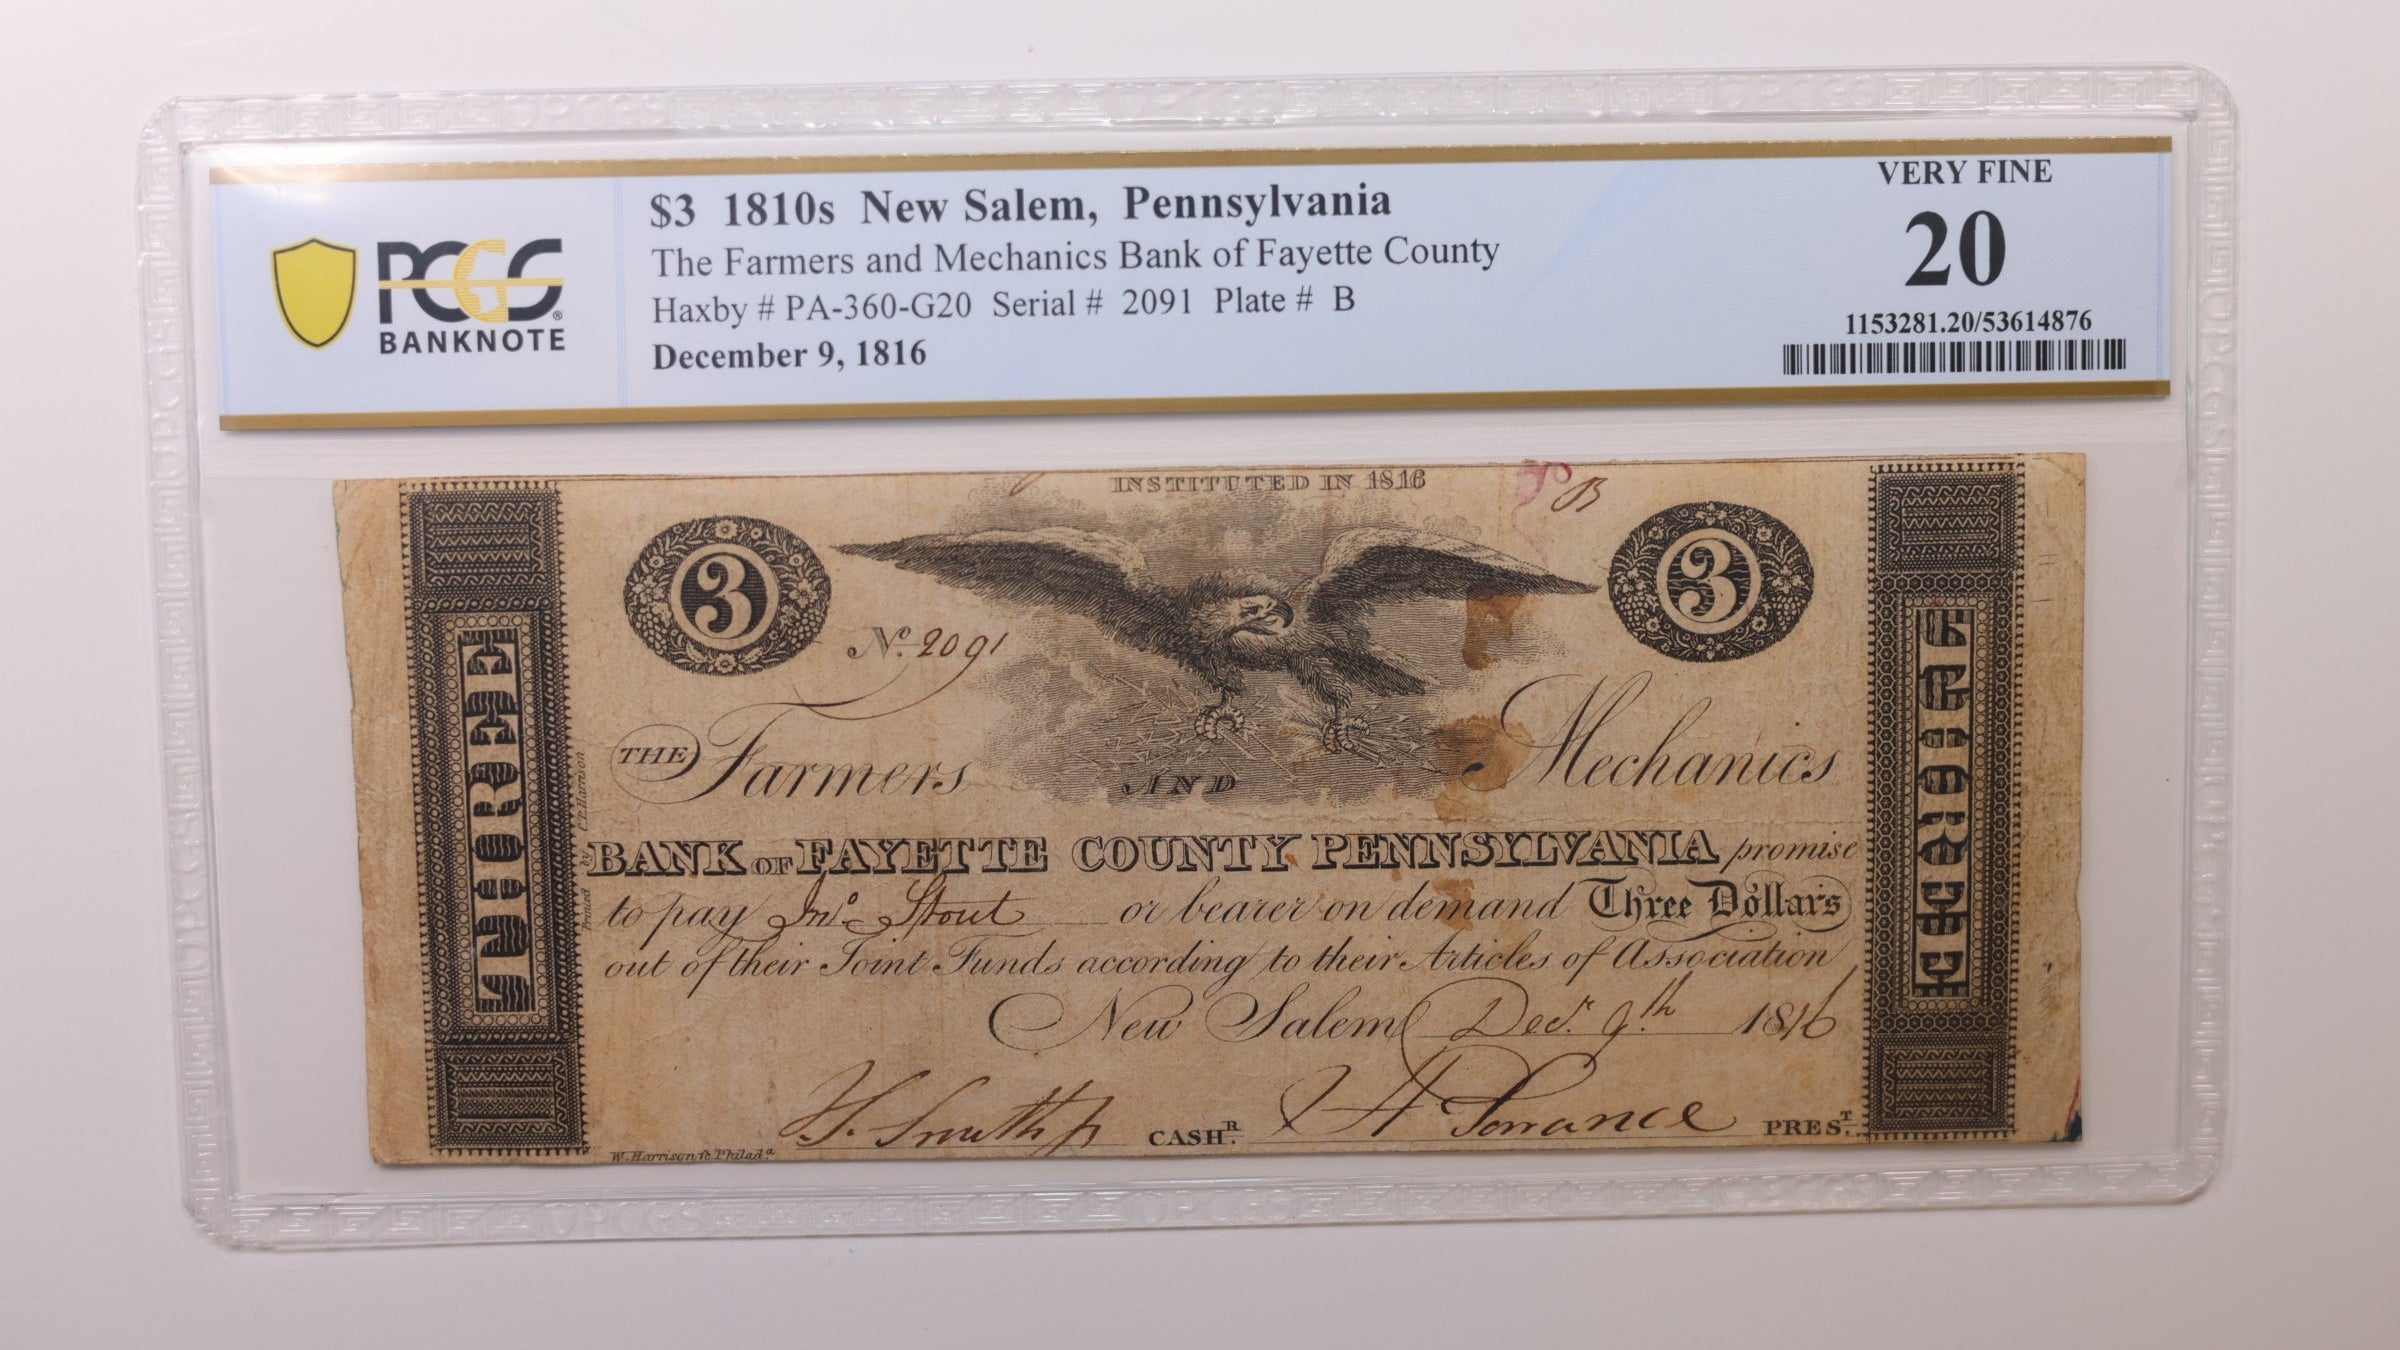 $3 1810s New Salem, Pennsylvania
The Farmers and Mechanics Bank of Fayette County
Haxby # PA-360-G20 Serial # 2091 Plate # B
December 9, 1816
PCGS
BANKNOTE
VERY FINE
20
1153281.20/53614876
INSTITUTED IN 1816
B
3
3
No. 2091
THREE
THREE
THE Farmers AND Mechanics
BANK OF FAYETTE COUNTY PENNSYLVANIA promise
to pay Jno. Stout or bearer on demand Three Dollars
out of their Joint Funds according to their Articles of Association
New Salem Decr. 9th 1816
Smith CASHR. Torrance PREST.
W. Harrison Sc Philada.
Printed by C.P. Harrison